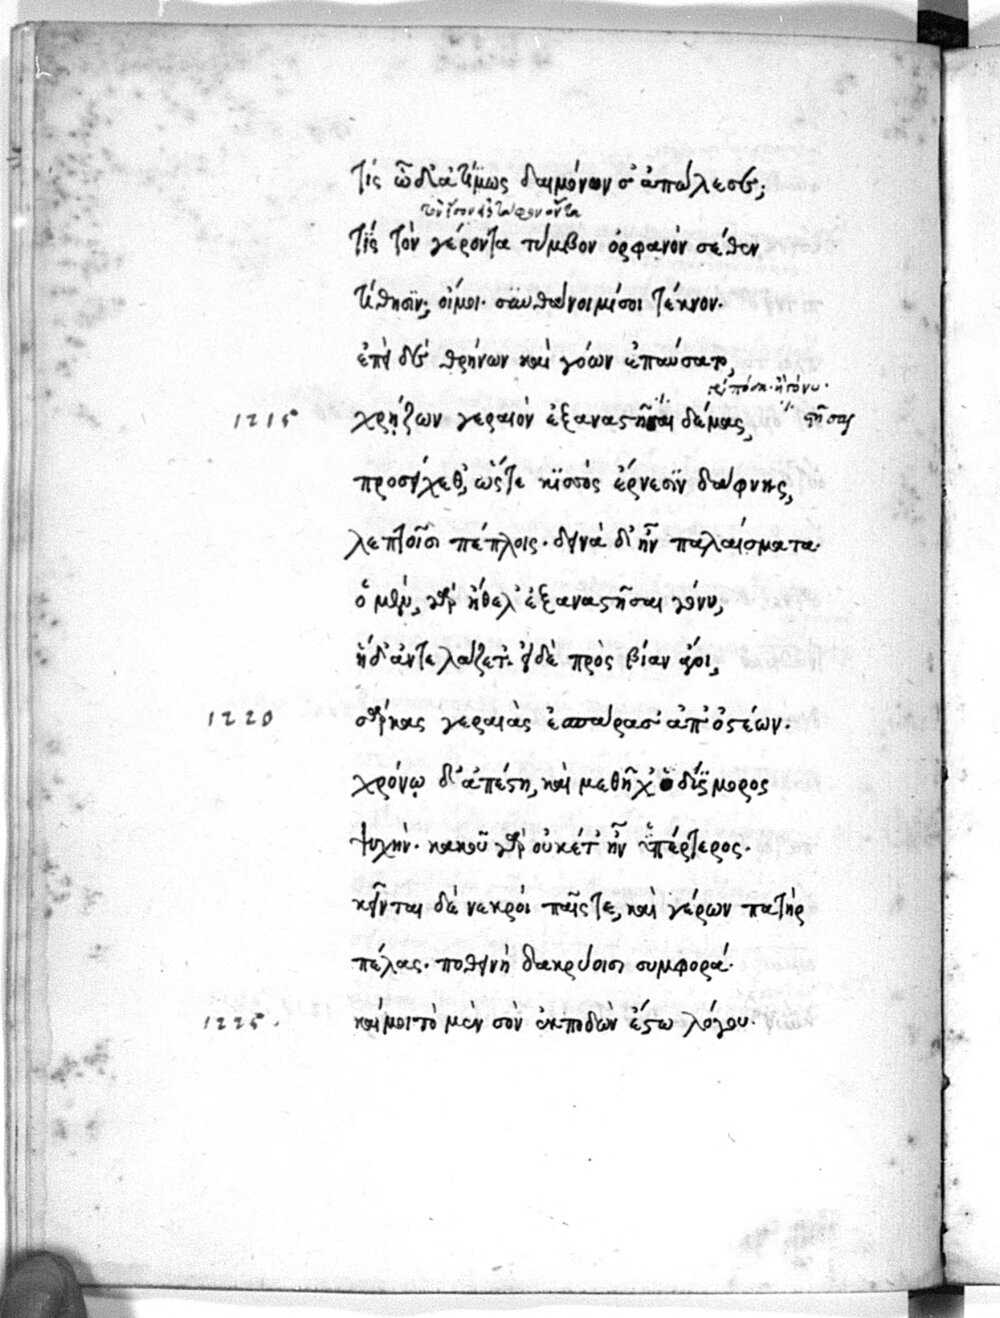 τίς ὧδ' ἀτίμως δαιμόνων σ' ἀπώλεσε;
τίς τὸν γέροντα τύμβον ὀρφανὸν σέθεν
τίθησιν; οἴμοι. συνθάνοιμί σοι τέκνον.
ἐπεὶ δὲ θρήνων καὶ γόων ἐπαύσατο,
1215 χρῄζων γεραιὸν ἐξαναστῆσαι δέμας, στῆσαι
προσείχεθ', ὥστε κισσὸς ἔρνεσιν δάφνης,
λεπτοῖσι πέπλοις. δεινὰ δ' ἦν παλαίσματα.
ὁ μὲν γὰρ ἤθελ' ἐξαναστῆσαι γόνυ,
ἡ δ' ἀντελάζετ'. εἰ δὲ πρὸς βίαν ἄγοι,
1220 σάρκας γεραιὰς ἐσπάρασσ' ἀπ' ὀστέων.
χρόνῳ δ' ἀπέστη, καὶ μεθῆχ' ὁ δύσμορος
ψυχήν. κακοῦ γὰρ οὐκέτ' ἦν ὑπέρτερος.
κεῖνται δὲ νεκροὶ παῖς τε, καὶ γέρων πατὴρ
πέλας. ποθεινὴ δακρύοισι συμφορά.
1225. καί μοι τὸ μὲν σὸν ἐκποδὼν ἔστω λόγου.